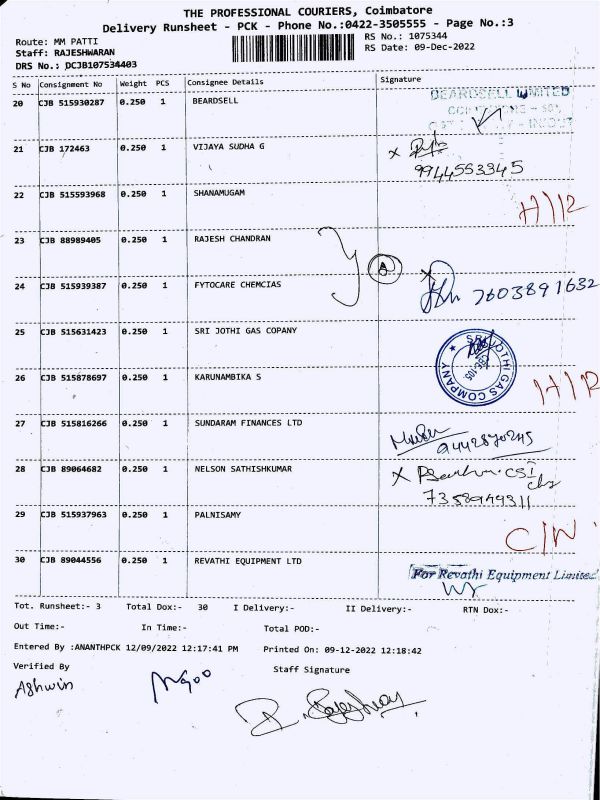 THE PROFESSIONAL COURIERS, Coimbatore
Delivery Runsheet - PCK - Phone No.:0422-3505555 - Page No.:3
Route: MM PATTI
RS No.: 1075344
Staff: RAJESHWARAN
RS Date: 09-Dec-2022
DRS No.: DCJB107534403
S No Consignment No Weight PCS Consignee Details Signature
20 CJB 515930287 0.250 1 BEARDSELL
BEARDSELL LIMITED
21 CJB 172463 0.250 1 VIJAYA SUDHA G
9944553345
22 CJB 515593968 0.250 1 SHANAMUGAM
H/12
23 CJB 88989405 0.250 1 RAJESH CHANDRAN
A
24 CJB 515939387 0.250 1 FYTOCARE CHEMCIAS 7603891632
25 CJB 515631423 0.250 1 SRI JOTHI GAS COPANY
SRI JOTHI GAS COMPANY
CBE-105
26 CJB 515878697 0.250 1 KARUNAMBIKA S
H/12
27 CJB 515816266 0.250 1 SUNDARAM FINANCES LTD
9442870245
28 CJB 89064682 0.250 1 NELSON SATHISHKUMAR
7358949311
29 CJB 515937963 0.250 1 PALNISAMY
C/N
30 CJB 89044556 0.250 1 REVATHI EQUIPMENT LTD
For Revathi Equipment Limited
Tot. Runsheet:- 3 Total Dox:- 30 I Delivery:- II Delivery:- RTN Dox:-
Out Time:- In Time:- Total POD:-
Entered By :ANANTHPCK 12/09/2022 12:17:41 PM Printed On: 09-12-2022 12:18:42
Verified By Staff Signature
Ashwin